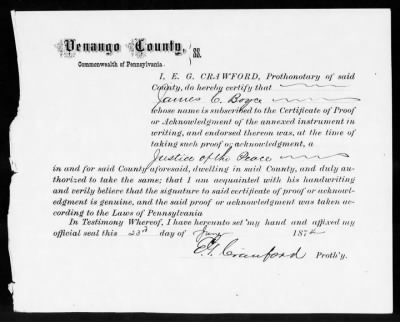 Venango County, } SS.
Commonwealth of Pennsylvania.
I, E. G. CRAWFORD, Prothonotary of said
County, do hereby certify that
James C. Boyce
whose name is subscribed to the Certificate of Proof
or Acknowledgment of the annexed instrument in
writing, and endorsed thereon was, at the time of
taking such proof or acknowledgment, a
Justice of the Peace
in and for said County aforesaid, dwelling in said County, and duly au-
thorized to take the same; that I am acquainted with his handwriting
and verily believe that the signature to said certificate of proof or acknowl-
edgment is genuine, and the said proof or acknowledgment was taken ac-
cording to the Laws of Pennsylvania
In Testimony Whereof, I have hereunto set my hand and affixed my
official seal this 23d day of 187
E. G. Crawford Proth'y.